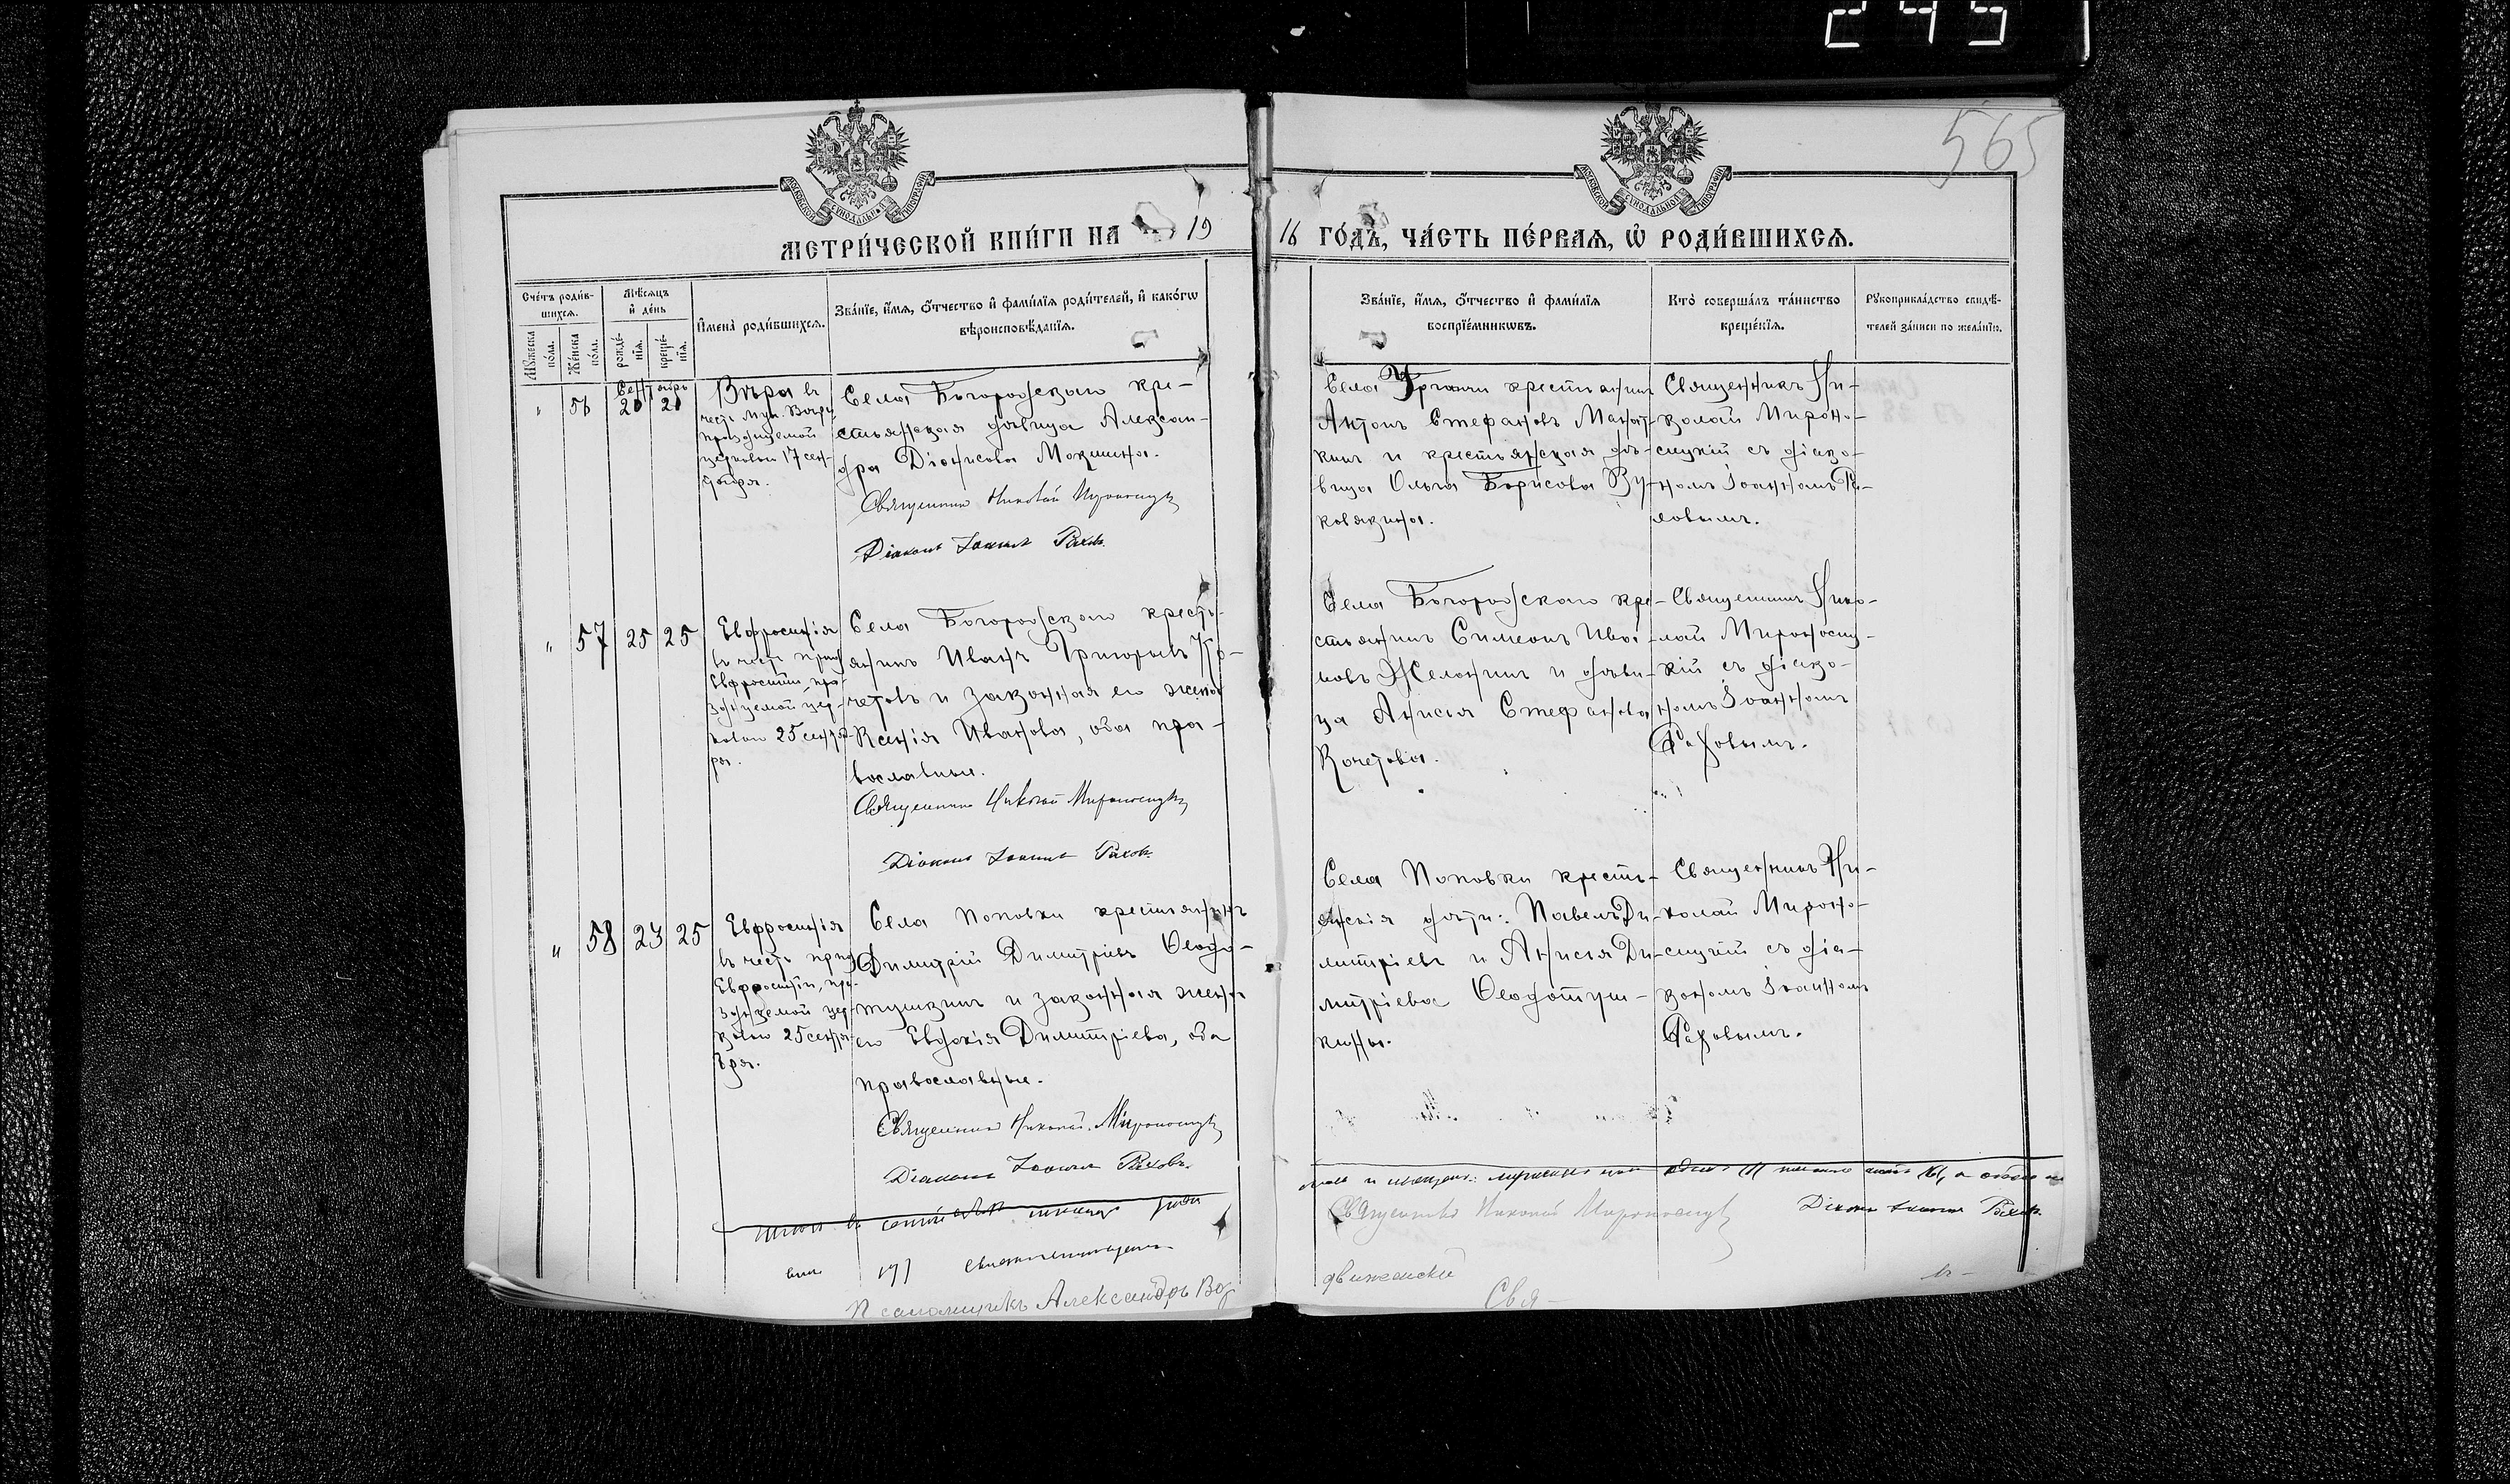 245
565
МЕТРИ́ЧЕСКОЙ КНИ́ГИ НА 19
16 ГО́ДЪ, ЧА́СТЬ ПЕ́РВАЯ, Ѡ РОДИ́ВШИХСЯ.
Счетъ роди́в-
шихся.
Мѣсяцъ
и де́нь
Мꙋжеска
по́ла.
Же́нска
по́ла.
рожде́-
нїя.
креще́-
нїя.
Имена̀ роди́вшихся.
Зва́нїе, и́мя, о́тчество и фами́лїя роди́телей, и како́гѡ
вѣроисповѣ́данїя.
Зва́нїе, и́мя, о́тчество и фами́лїя
воспрїе́мникѡвъ.
Кто̀ соверша́лъ та́инство
креще́нїя.
Рꙋкоприкла́дство свидѣ́-
телей за́писи по жела́нїю.
Сентябрь
" 56 20 21
Вѣра въ
честь муч. Вѣры
празднуемой
церковью 17 сен-
тября.
Села Богородскаго кре-
стьянская дѣвица Алексан-
дра Діонисова Мокшина.
Священникъ Николай Мироносицкій
Діаконъ Іоаннъ Раховъ.
Села крестьянинъ
Антонъ Стефановъ
кинъ и крестьянская дѣ-
вица Ольга Борисова Ву-
ковякина.
Священникъ Ни-
колай Мироно-
сицкій съ діако-
номъ Іоанномъ Ра-
ховымъ.
" 57 25 25
Евфросинія
въ честь преп.
Евфросиніи, пра-
зднуемой цер-
ковью 25 сентяб-
ря.
Села Богородскаго кресть-
янинъ Иванъ Григорьевъ Ко-
четовъ и законная его жена
Ксенія Иванова, оба пра-
вославные.
Священникъ Николай Мироносицкій
Діаконъ Іоаннъ Раховъ.
Села Богородскаго кре-
стьянинъ Симеонъ Ива-
новъ Желонинъ и дѣви-
ца Анисія Стефанова
Кочетова.
Священникъ Нико-
лай Мироносиц-
кій съ діако-
номъ Іоанномъ
Раховымъ.
" 58 23 25
Евфросинія
въ честь преп.
Евфросиніи, пра-
зднуемой цер-
ковью 25 сентя-
бря.
Села Поповки крестьянинъ
Димитрій Димитріевъ Ѳедо-
тушкинъ и законная жена
его Евдокія Димитріева, оба
православные.
Священникъ Николай Мироносицкій
Діаконъ Іоаннъ Раховъ.
Села Поповки кресть-
янскія дѣти: Павелъ Ди-
митріевъ и Анисія Ди-
митріева Ѳедотуш-
кины.
Священникъ Ни-
колай Мироно-
сицкій съ діа-
кономъ Іоанномъ
Раховымъ.
Священникъ Николай Мироносицкій Діаконъ Іоаннъ Раховъ.
Псаломщикъ Александръ Воз
движенскій
Свя-